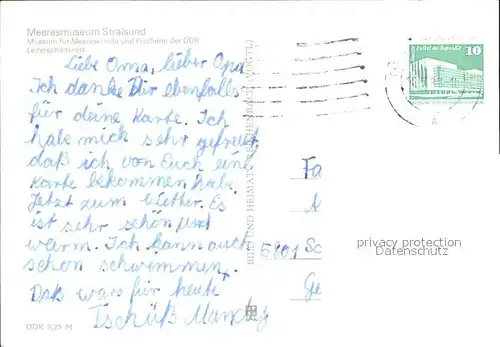 Meeresmuseum Stralsund
Museum für Meereskunde und Fischerei der DDR
Lederschildkröte
Liebe Oma, lieber Opa
Ich danke Dir ebenfalls
für deine Karte. Ich
habe mich sehr gefreut,
daß ich von Euch eine
Karte bekommen habe.
Jetzt zum Wetter. Es
ist sehr schön und
warm. Ich kann auch
schon schwimmen.
Das wars für heute
Tschüß Mandy
DDR 0,25 M
BILD UND HEIMAT REICHENBACH (VOGTL)
10
Fa
5801 Sc
Ge
privacy protection
Datenschutz